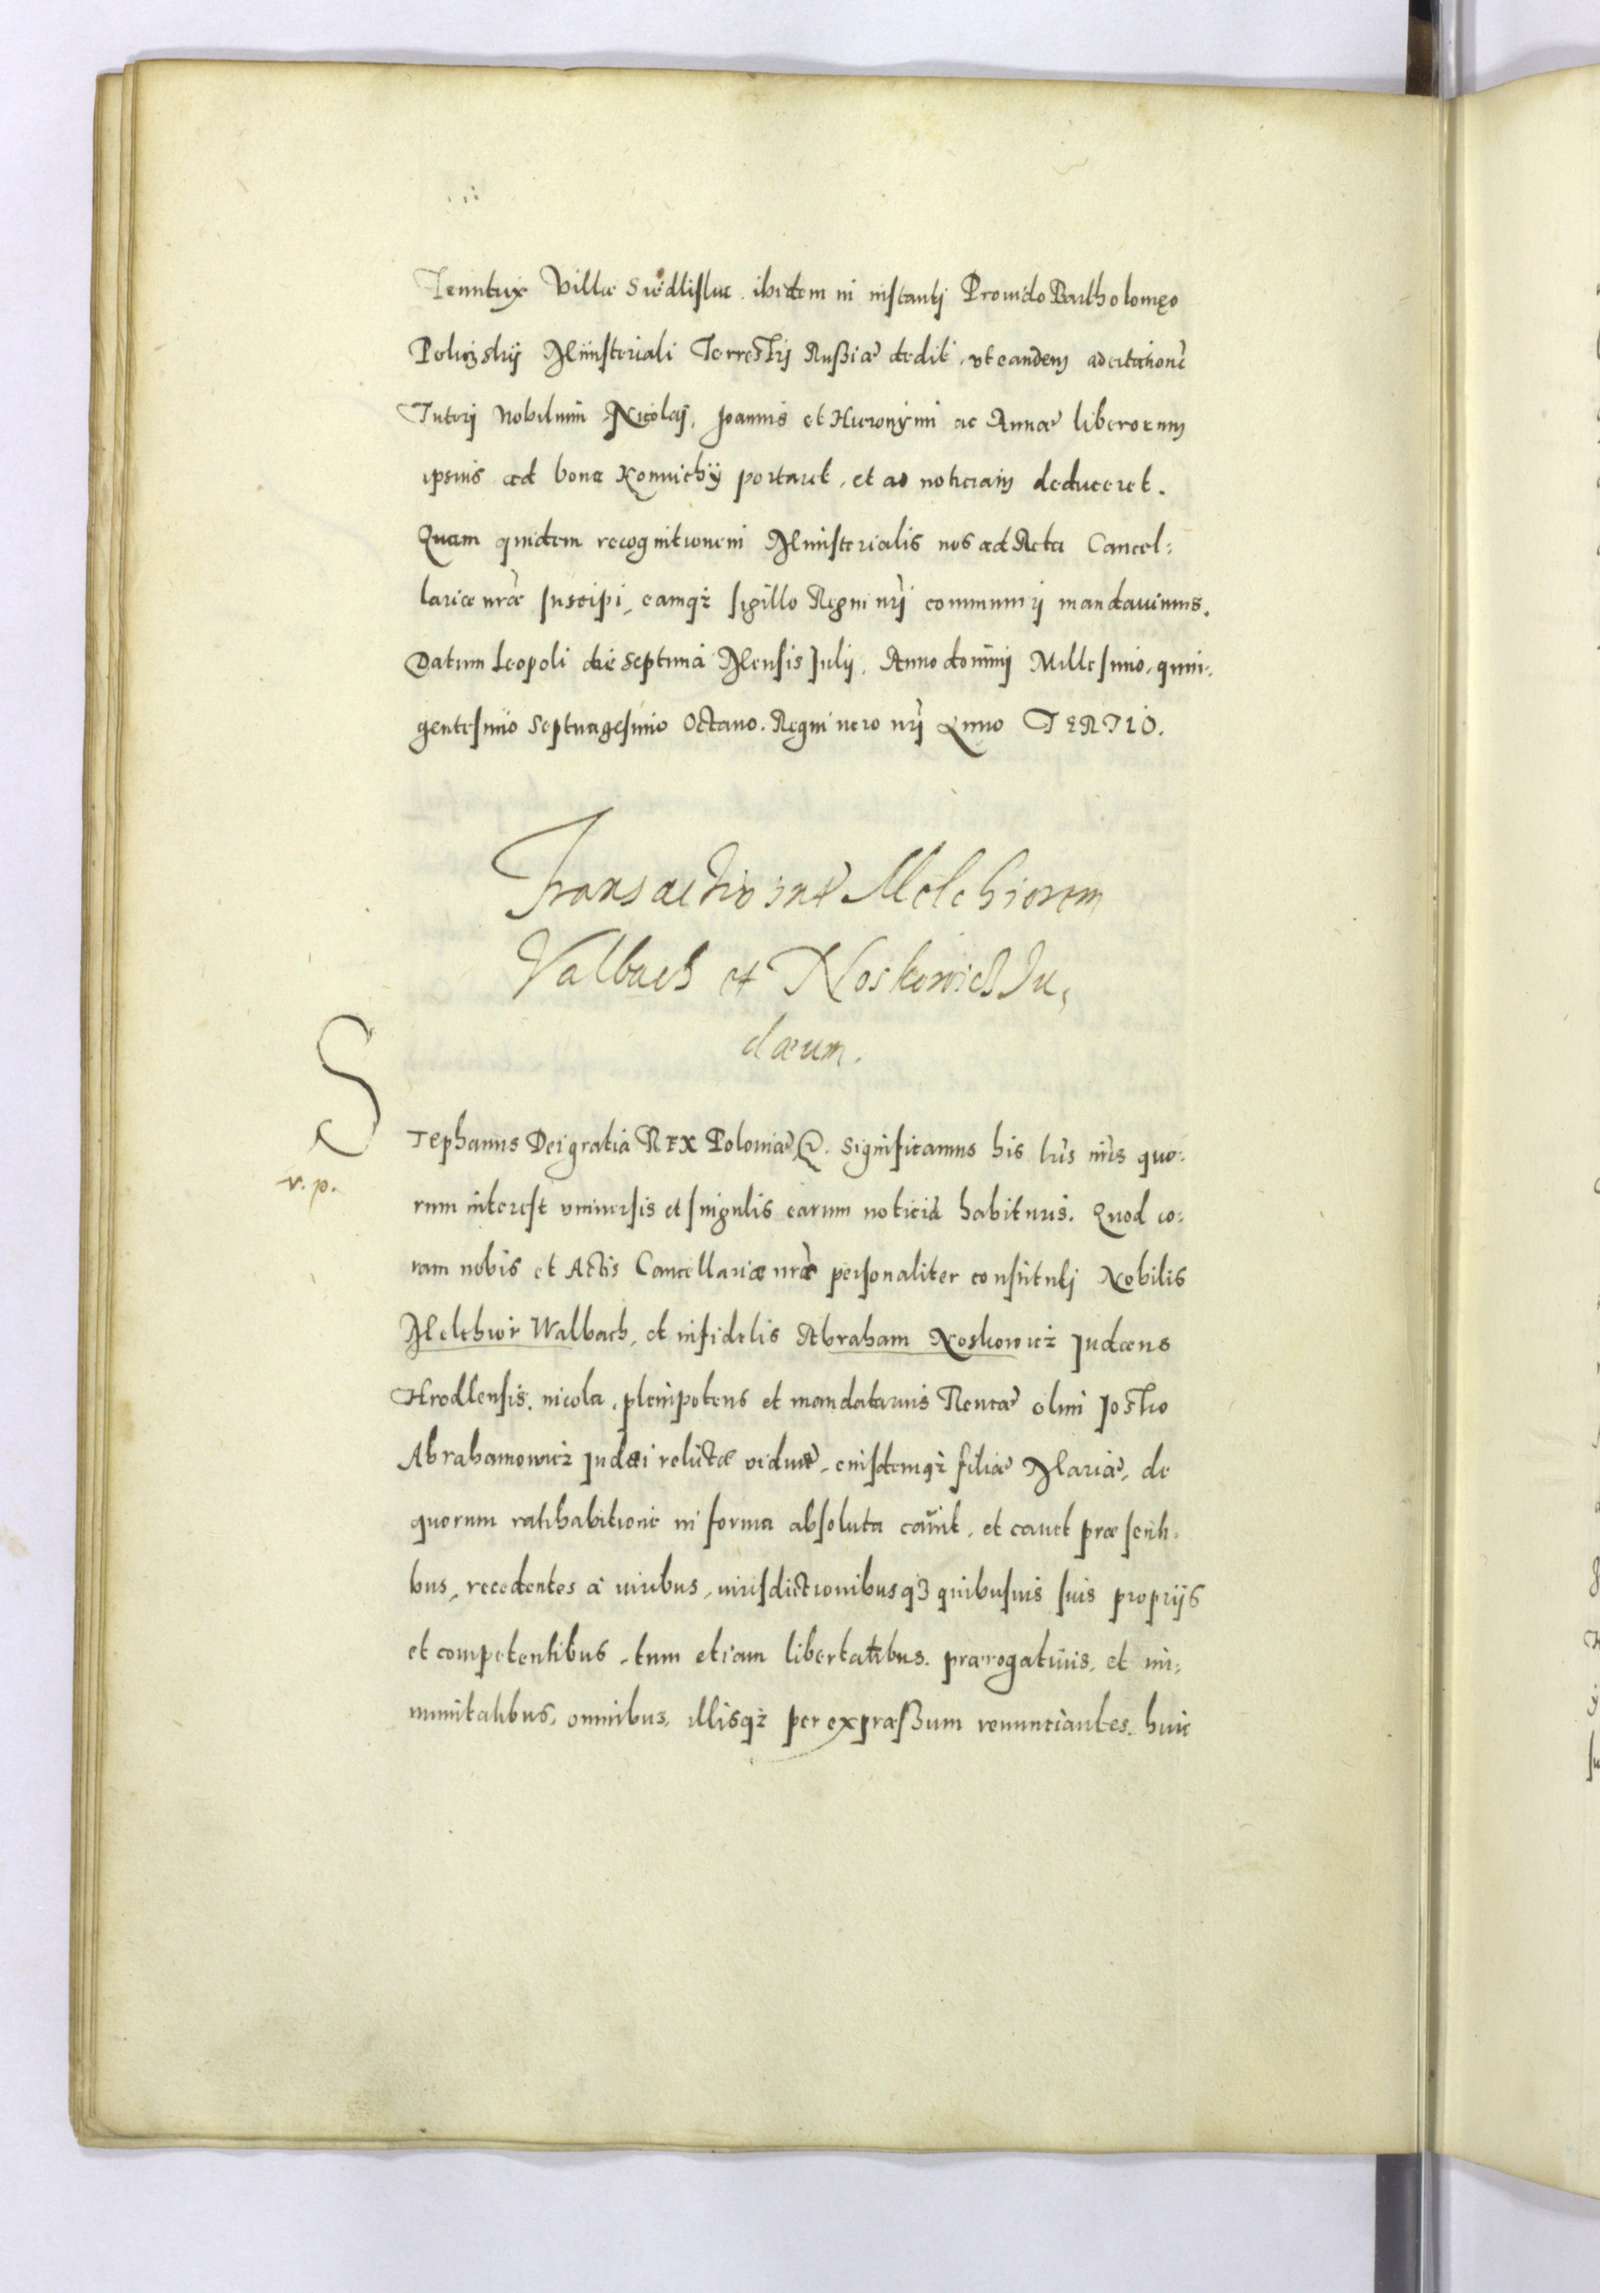 Tenutrix Villæ Siedliskæ. ibidem in instanti Prouido Bartholomęo
Ministeriali Terrestrij Rußiæ dedit, vt eandem ad citationē
Tutorj Nobilium Nicolaj, Joannis et Hieronÿmi ac Annæ liberorum
ipsius ad bona Konuichÿ portaret, et ad noticiam deduceret.
Quam quidem recognitionem Ministerialis nos ad Acta Cancel:
lariæ nr̃æ suscipi, eamqꝫ sigillo Regni nr̃j communirj mandauimus.
Datum Leopoli die Septima Mensis Julij, Anno dominj Millesimo, quin:
gentesimo Septuagesimo Octauo. Regni uero nr̃j Anno TERTIO.
Transactio int̃ Melchiorem
Valbach et Noskowich Ju,
dæum.
S
v. p.
Tephanus Dei gratia REX Poloniæ &. Significamus his lr̃is nr̃is quo:
rum interest vniuersis et singulis earum noticia habituris. Quod co:
ram nobis et Actis Cancellariæ nr̃æ personaliter constitutj Nobilis
Melchior Walbach, et infidelis Abraham Noskowicz Judæus
Hrodlensis, incola, plenipotens et mandatarius olim Josko
Abrahamowicz Judæi relictæ viduæ, eiusdemqꝫ filiæ Mariæ, de
quorum ratihabitione in forma absoluta cauit, et cauet præsenti:
bus, recedentes à iuribus, iurisdictionibusqꝫ quibusuis suis proprijs
et competentibus, tum etiam libertatibus, prærogatiuis, et im:
munitatibus, omnibus, illisqꝫ per expræßum renunciantes, huic